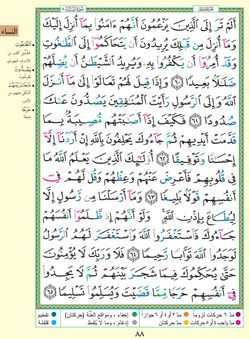 أَلَمْ تَرَ إِلَى ٱلَّذِينَ يَزْعُمُونَ أَنَّهُمْ ءَامَنُوا۟ بِمَآ أُنزِلَ إِلَيْكَ
وَمَآ أُنزِلَ مِن قَبْلِكَ يُرِيدُونَ أَن يَتَحَاكَمُوٓا۟ إِلَى ٱلطَّٰغُوتِ
وَقَدْ أُمِرُوٓا۟ أَن يَكْفُرُوا۟ بِهِۦ وَيُرِيدُ ٱلشَّيْطَٰنُ أَن يُضِلَّهُمْ
ضَلَٰلًۢا بَعِيدًا ٦٠ وَإِذَا قِيلَ لَهُمْ تَعَالَوْا۟ إِلَىٰ مَآ أَنزَلَ
ٱللَّهُ وَإِلَى ٱلرَّسُولِ رَأَيْتَ ٱلْمُنَٰفِقِينَ يَصُدُّونَ عَنكَ
صُدُودًا ٦١ فَكَيْفَ إِذَآ أَصَٰبَتْهُم مُّصِيبَةٌۢ بِمَا
قَدَّمَتْ أَيْدِيهِمْ ثُمَّ جَآءُوكَ يَحْلِفُونَ بِٱللَّهِ إِنْ أَرَدْنَآ إِلَّآ
إِحْسَٰنًا وَتَوْفِيقًا ٦٢ أُو۟لَٰٓئِكَ ٱلَّذِينَ يَعْلَمُ ٱللَّهُ مَا
فِى قُلُوبِهِمْ فَأَعْرِضْ عَنْهُمْ وَعِظْهُمْ وَقُل لَّهُمْ فِىٓ
أَنفُسِهِمْ قَوْلًۢا بَلِيغًا ٦٣ وَمَآ أَرْسَلْنَا مِن رَّسُولٍ إِلَّا
لِيُطَاعَ بِإِذْنِ ٱللَّهِ وَلَوْ أَنَّهُمْ إِذ ظَّلَمُوٓا۟ أَنفُسَهُمْ
جَآءُوكَ فَٱسْتَغْفَرُوا۟ ٱللَّهَ وَٱسْتَغْفَرَ لَهُمُ ٱلرَّسُولُ
لَوَجَدُوا۟ ٱللَّهَ تَوَّابًا رَّحِيمًا ٦٤ فَلَا وَرَبِّكَ لَا يُؤْمِنُونَ
حَتَّىٰ يُحَكِّمُوكَ فِيمَا شَجَرَ بَيْنَهُمْ ثُمَّ لَا يَجِدُوا۟
فِىٓ أَنفُسِهِمْ حَرَجًا مِّمَّا قَضَيْتَ وَيُسَلِّمُوا۟ تَسْلِيمًا ٦٥
٨٨